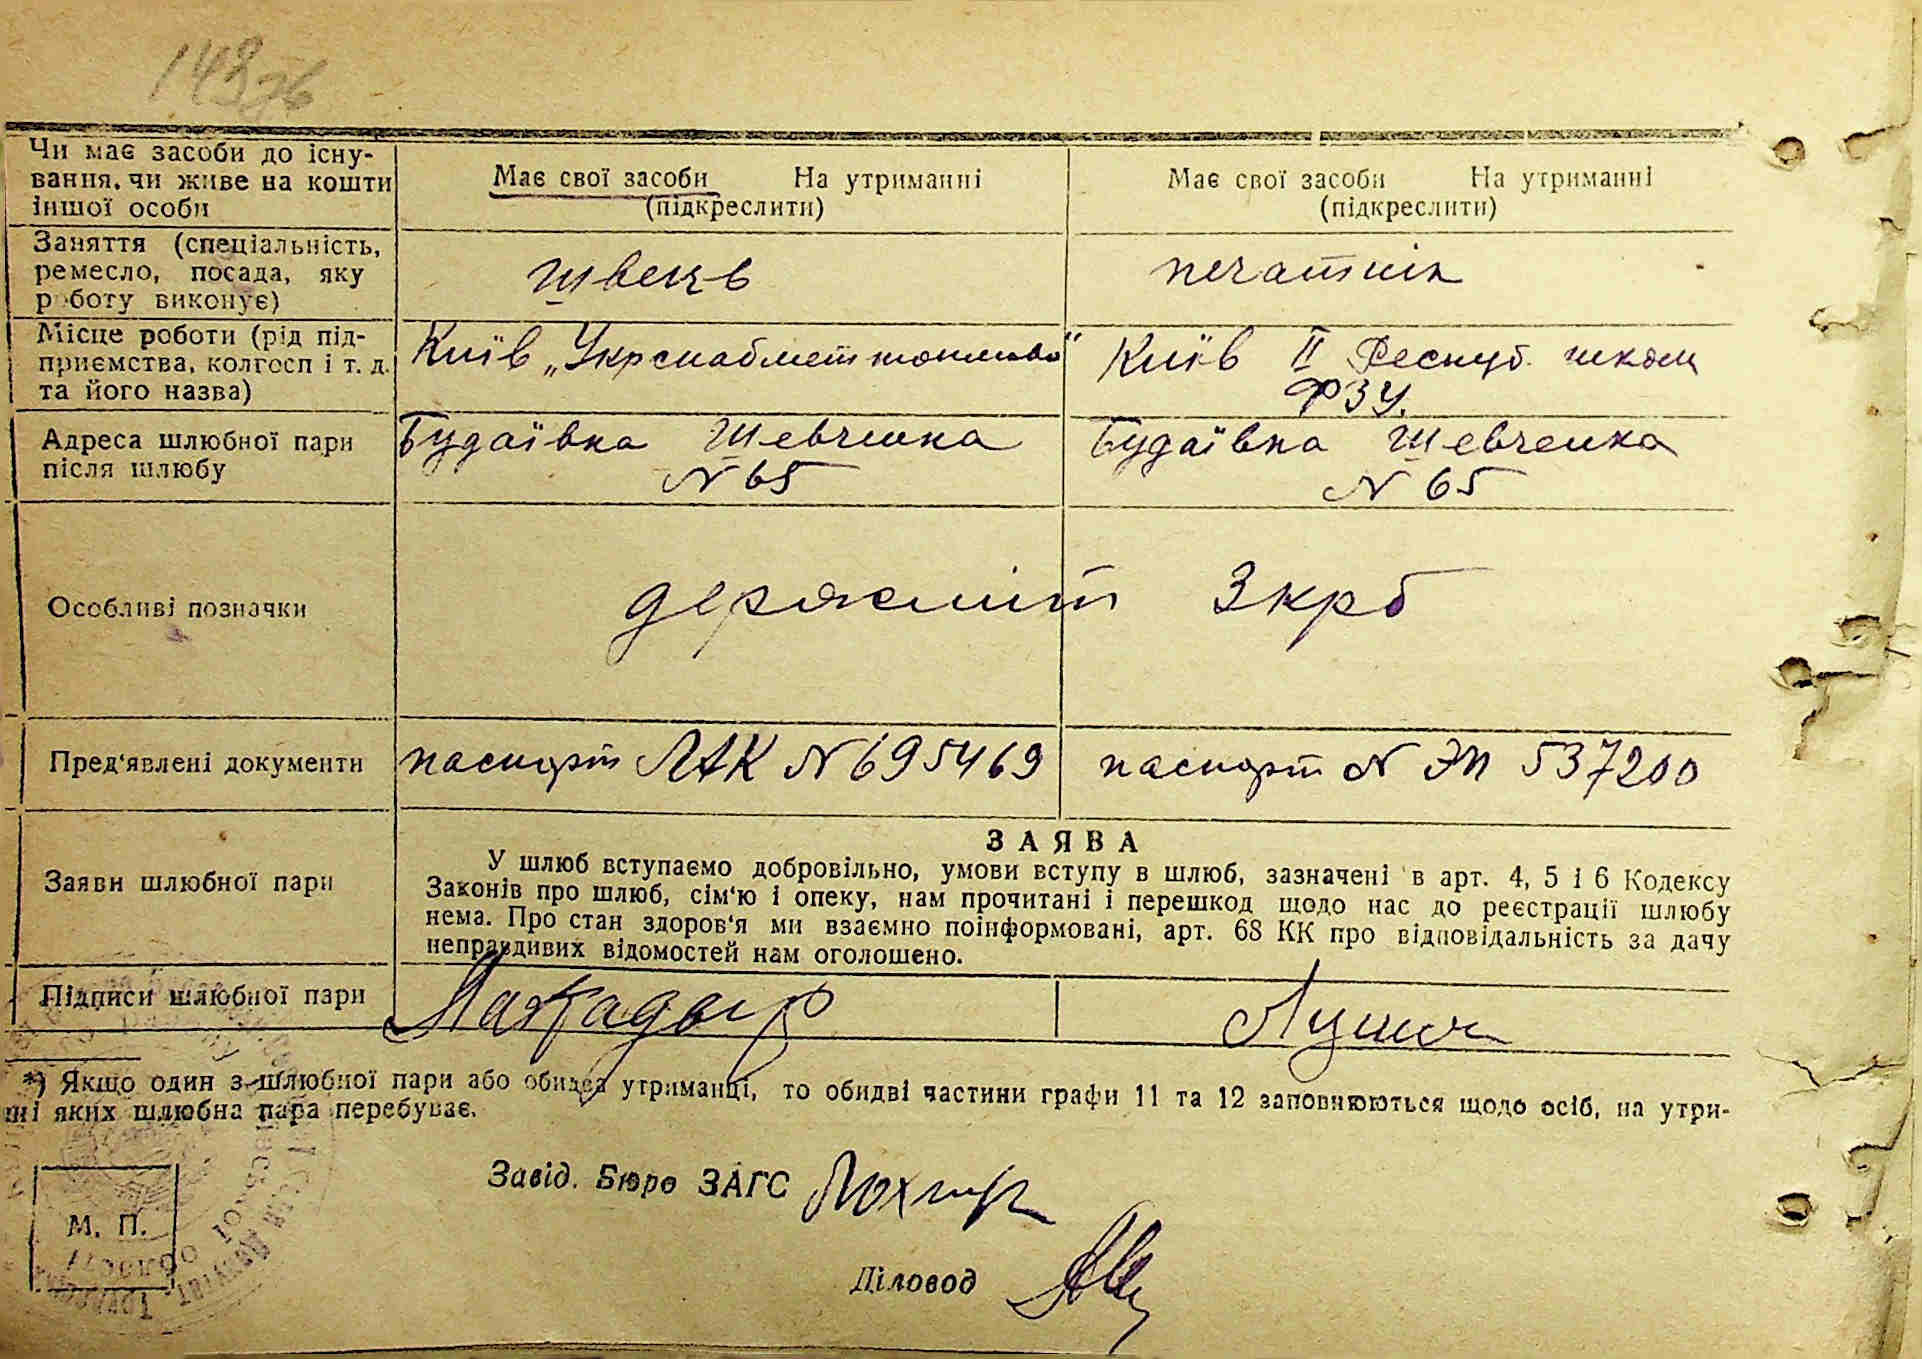 143зв
Чи має засоби до існу-
вання, чи живе на кошти
іншої особи
Має свої засоби На утриманні
(підкреслити)
Має свої засоби На утриманні
(підкреслити)
Заняття (спеціальність,
ремесло, посада, яку
роботу виконує)
швець
печатнік
Місце роботи (рід під-
приємства, колгосп і т. д.
та його назва)
Київ
Київ ІІ Респуб. школи
ФЗУ.
Адреса шлюбної пари
після шлюбу
Будаївка Шевченка
N 65
Будаївка Шевченка
N 65
Особливі позначки
держмит 3 крб
Пред'явлені документи
паспорт ЛАК N 695469
паспорт N ЭП 537200
Заяви шлюбної пари
ЗАЯВА
У шлюб вступаємо добровільно, умови вступу в шлюб, зазначені в арт. 4, 5 і 6 Кодексу
Законів про шлюб, сім'ю і опеку, нам прочитані і перешкод щодо нас до реєстрації шлюбу
нема. Про стан здоров'я ми взаємно поінформовані, арт. 68 КК про відповідальність за дачу
неправдивих відомостей нам оголошено.
Підписи шлюбної пари
*) Якщо один з шлюбної пари або обидва утриманці, то обидві частини графи 11 та 12 заповнюються щодо осіб, на утри-
ні яких шлюбна пара перебуває.
Завід. Бюро ЗАГС
М. П.
Діловод